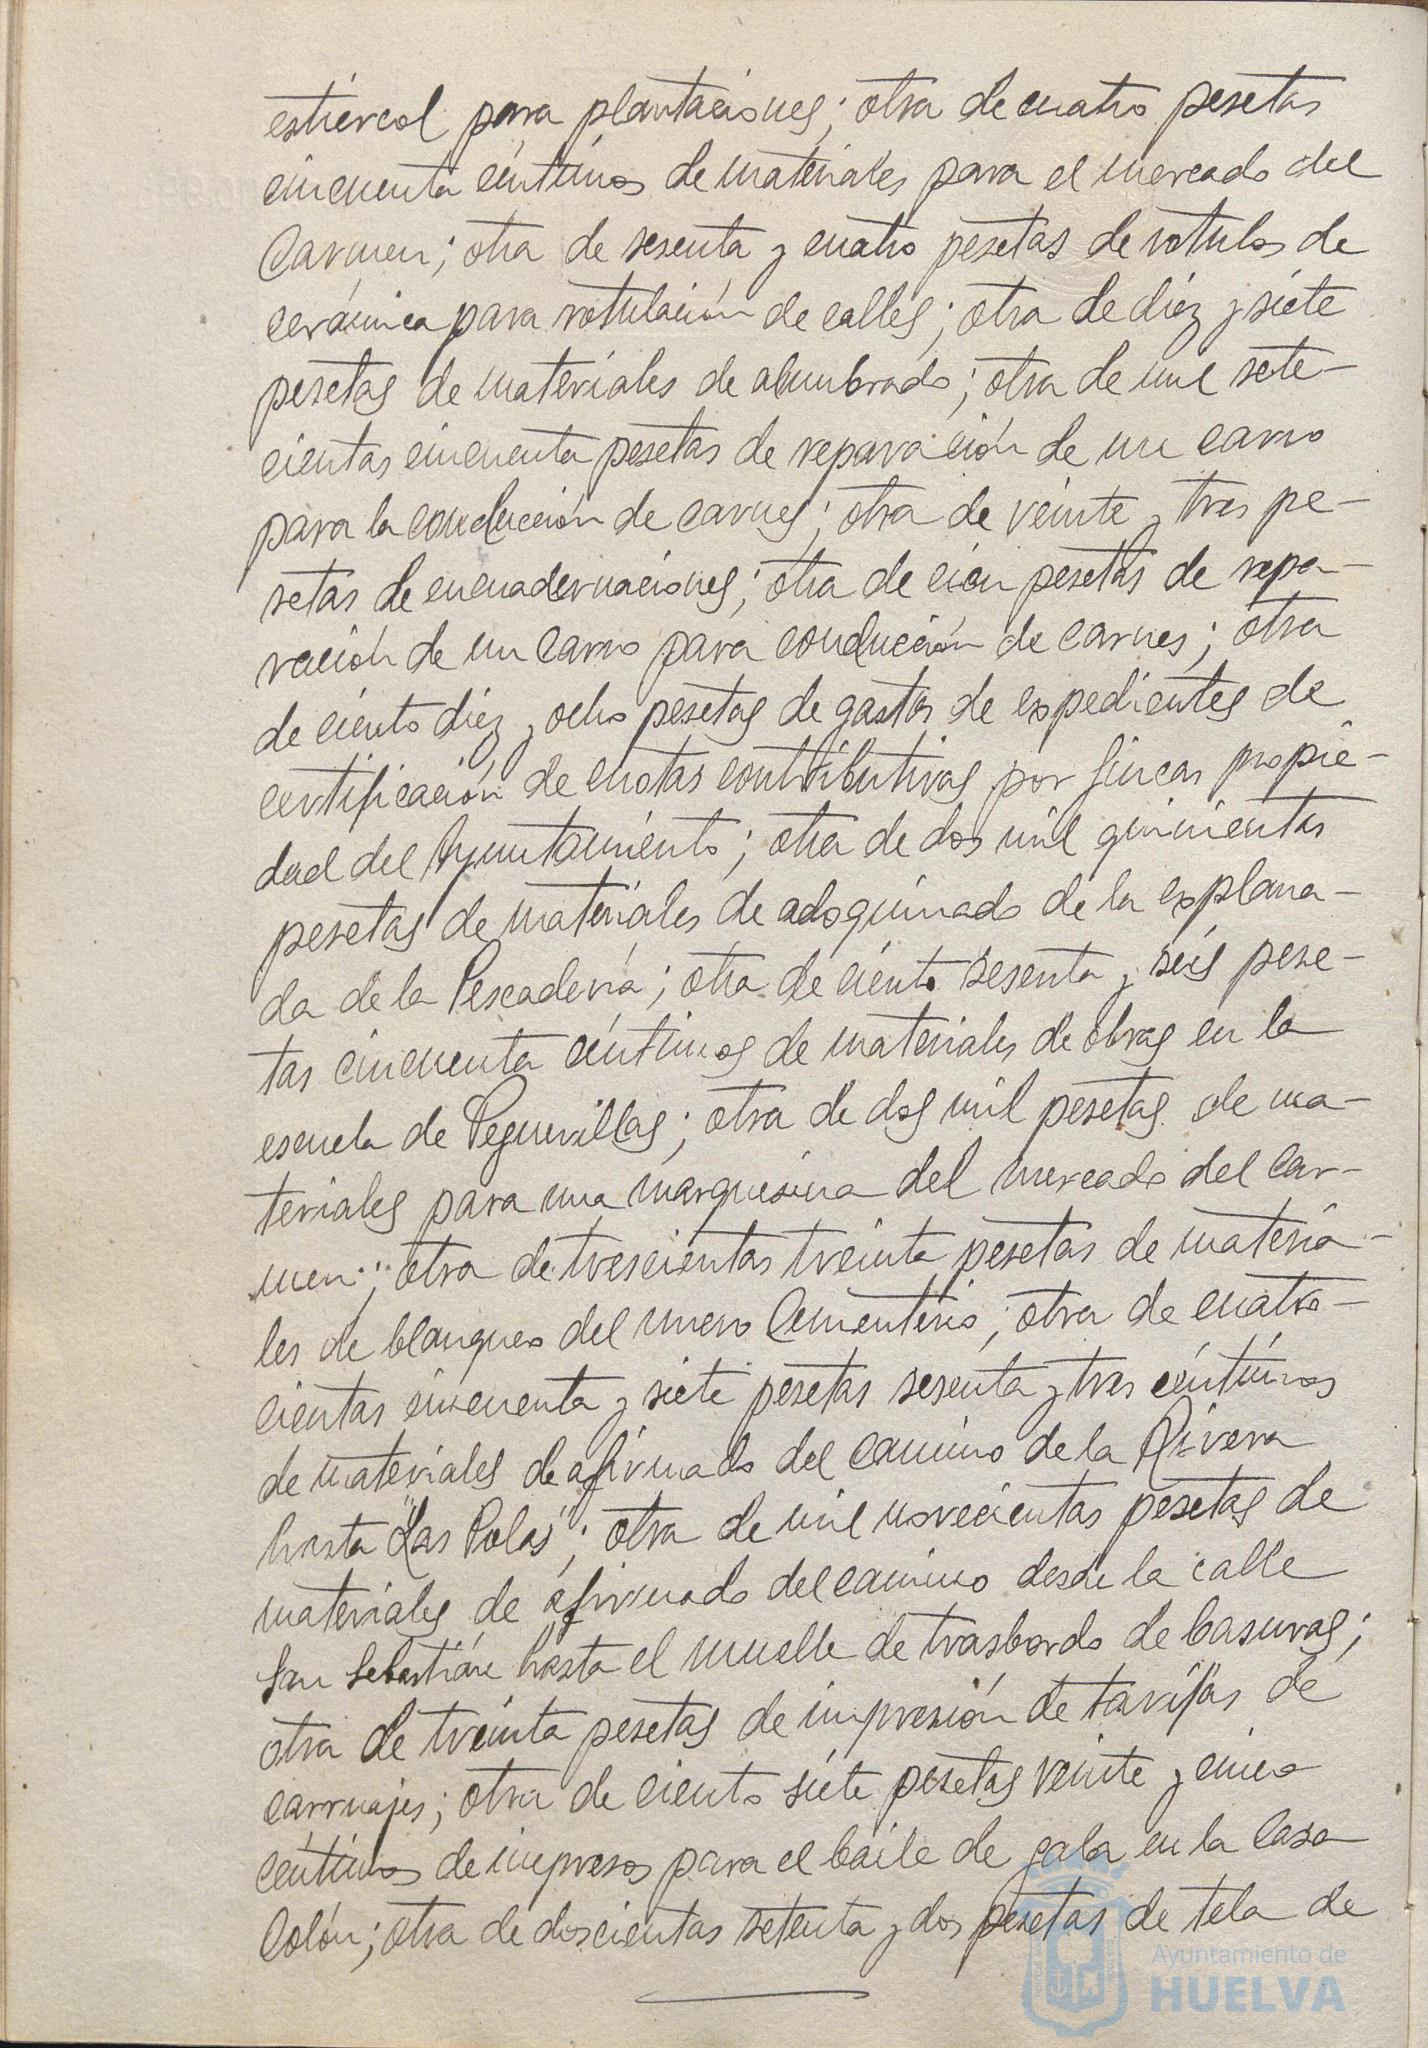 estiércol para plantaciones; otra de cuatro pesetas
cincuenta céntimos de materiales para el mercado del
Carmen; otra de sesenta y cuatro pesetas de rótulos de
cerámica para rotulación de calles; otra de diez y siete
pesetas de materiales de alumbrado; otra de mil sete-
cientas cincuenta pesetas de reparación de un carro
para la conducción de carnes; otra de veinte y tres pe-
setas de encuadernaciones; otra de cien pesetas de repa-
ración de un carro para conducción de carnes; otra
de ciento diez y ocho pesetas de gastos de expedientes de
certificación de cuotas contributivas por fincas propie-
dad del Ayuntamiento; otra de dos mil quinientas
pesetas de materiales de adoquinado de la explana-
da de la Pescadería; otra de ciento sesenta y seis pese-
tas cincuenta céntimos de materiales de obras en la
escuela de Peguerillas; otra de dos mil pesetas de ma-
teriales para una marquesina del mercado del Car-
men; otra de trescientas treinta pesetas de materia-
les de blanqueo del nuevo Cementerio; otra de cuatro-
cientas cincuenta y siete pesetas sesenta y tres céntimos
de materiales de afirmado del camino de la Rivera
hasta "Las Polas"; otra de mil novecientas pesetas de
materiales de afirmado del camino desde la calle
San Sebastián hasta el muelle de trasbordo de basuras;
otra de treinta pesetas de impresión de tarifas de
carruajes; otra de ciento siete pesetas veinte y cinco
céntimos de impresos para el baile de gala en la Casa
Colón; otra de doscientas setenta y dos pesetas de tela de
Ayuntamiento de
HUELVA